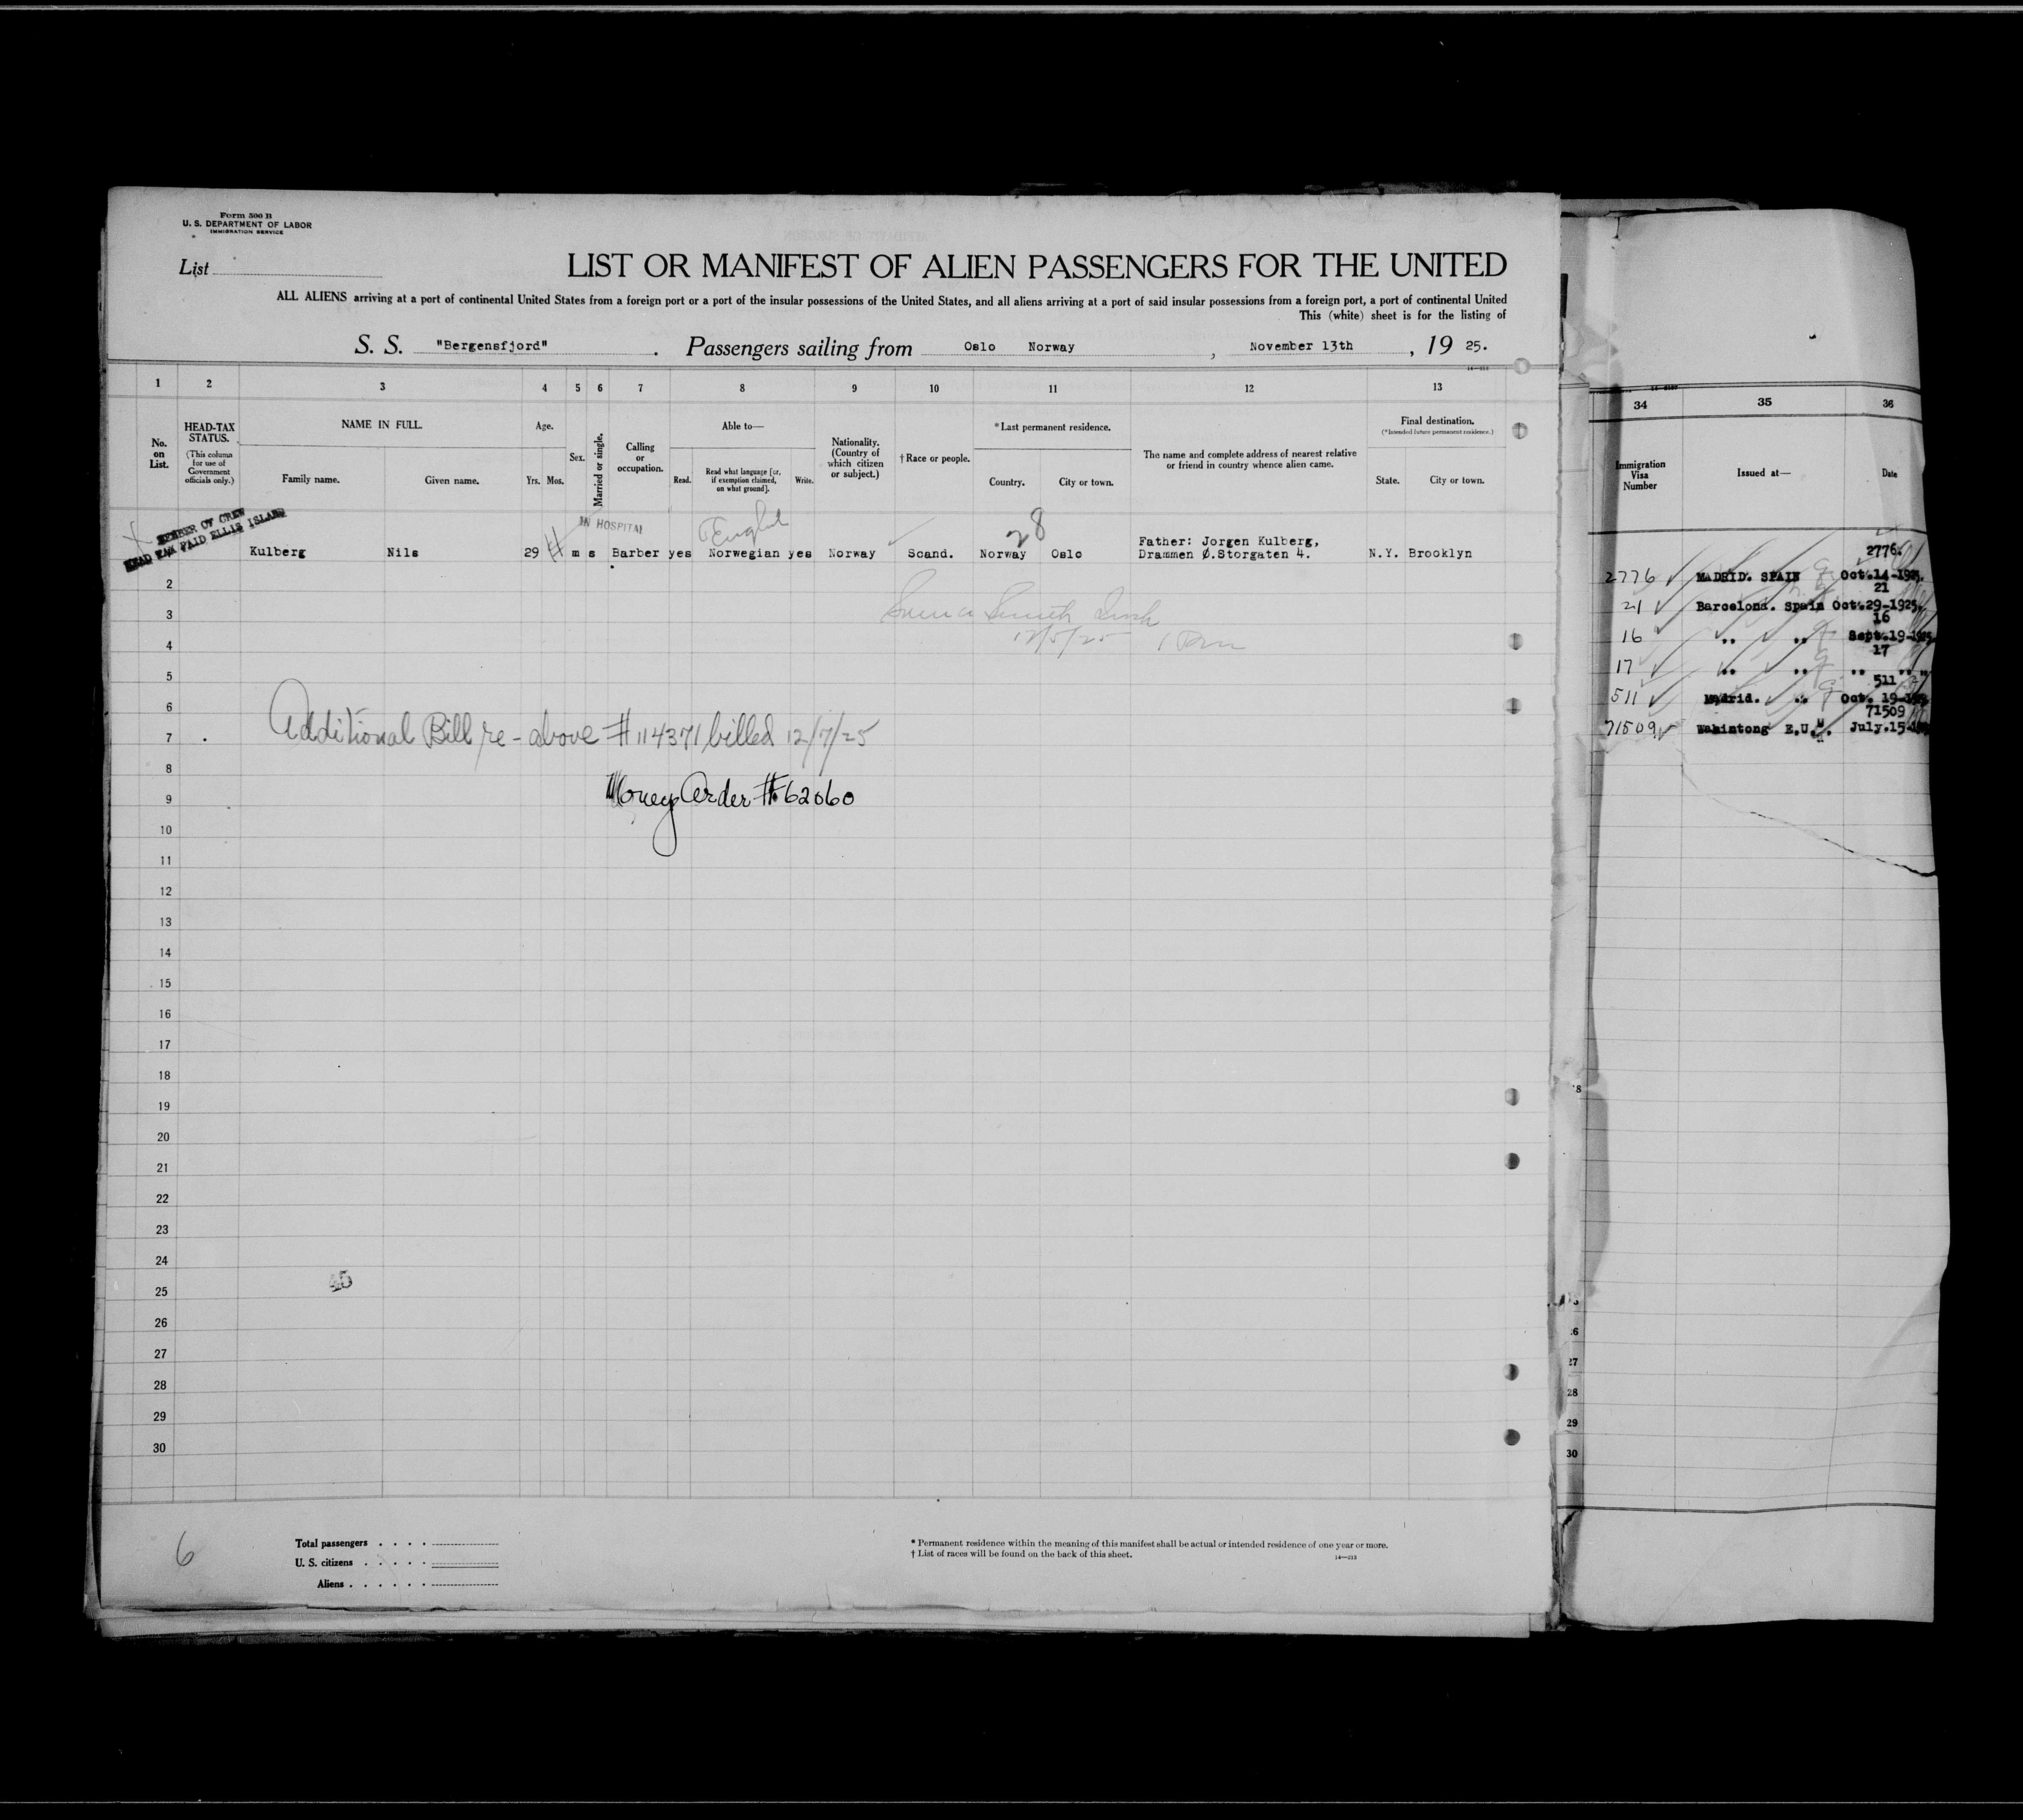 Form 500 B
U. S. DEPARTMENT OF LABOR
IMMIGRATION SERVICE
List
LIST OR MANIFEST OF ALIEN PASSENGERS FOR THE UNITED
ALL ALIENS arriving at a port of continental United States from a foreign port or a port of the insular possessions of the United States, and all aliens arriving at a port of said insular possessions from a foreign port, a port of continental United
This (white) sheet is for the listing of
S. S. "Bergensfjord" . Passengers sailing from Oslo Norway , November 13th , 19 25.
1 2 3 4 5 6 7 8 9 10 11 12 13
No. on List.
HEAD-TAX STATUS.
(This column for use of Government officials only.)
NAME IN FULL.
Family name. Given name.
Age.
Yrs. Mos.
Sex.
Married or single.
Calling or occupation.
Able to—
Read. Read what language [or, if exemption claimed, on what ground]. Write.
Nationality. (Country of which citizen or subject.)
†Race or people.
*Last permanent residence.
Country. City or town.
The name and complete address of nearest relative or friend in country whence alien came.
Final destination.
(*Intended future permanent residence.)
State. City or town.
MEMBER OF CREW
HEAD TAX PAID ELLIS ISLAND
IN HOSPITAL
28
Father: Jorgen Kulberg,
Kulberg Nils 29 m s Barber yes Norwegian yes Norway Scand. Norway Oslo Drammen Ø.Storgaten 4. N.Y. Brooklyn
2
3
12/5/25
4
5
6
Additional Bill re-above #114371 billed 12/7/25
7
8
Money Order #62060
9
10
11
12
13
14
15
16
17
18
19
20
21
22
23
24
45
25
26
27
28
29
30
6
Total passengers
U. S. citizens
Aliens
* Permanent residence within the meaning of this manifest shall be actual or intended residence of one year or more.
† List of races will be found on the back of this sheet.
14—213
34 35 36
Immigration Visa Number
Issued at—
Date
2776.
2776 MADRID. SPAIN Oct.14-1925.
21
21 Barcelond. Spain Oct.29-1925.
16
16 " " Sept.19-1925
17
17 " " " "
511
511 Madrid. " Oct. 19-
71509
71509 Wahintong E.U. July.15-
28
29
30